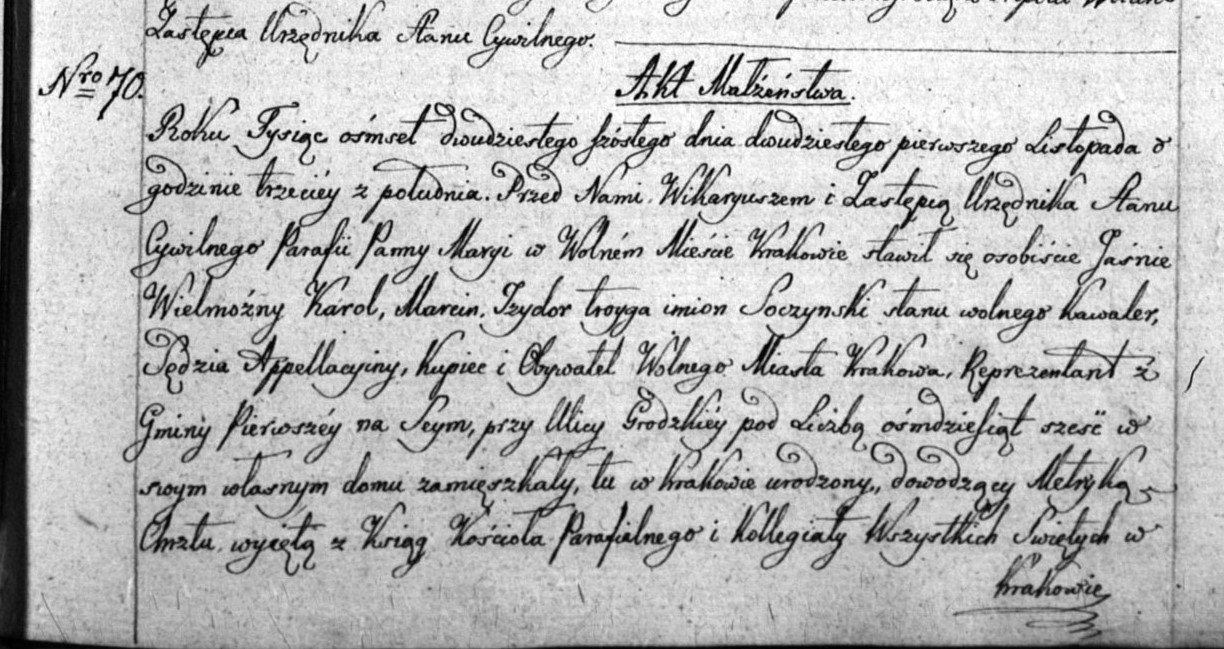 Zastępca Urzędnika Stanu Cywilnego.
Nro 70.
Akt Małżeństwa.
Roku Tysiąc ośmset dwudziestego szóstego dnia dwudziestego pierwszego Listopada o
godzinie trzeciéy z południa. Przed Nami Wikaryuszem i Zastępcą Urzędnika Stanu
Cywilnego Parafii Panny Maryi w Wolném Mieście Krakowie stawił się osobiście Jaśnie
Wielmożny Karol, Marcin, Izydor troyga imion Soczynski stanu wolnego Kawaler,
Sędzia Appellacyiny, Kupiec i Obywatel Wolnego Miasta Krakowa, Reprezentant z
Gminy Pierwszéy na Seym, przy Ulicy Grodzkiéy pod Liczbą ośmdziesiąt sześć w
swoym własnym domu zamięszkały, tu w Krakowie urodzony, dowodzący Metryką
Chrztu wyiętą z Ksiąg Kościoła Parafialnego i Kollegiaty Wszystkich Świętych w
Krakowie